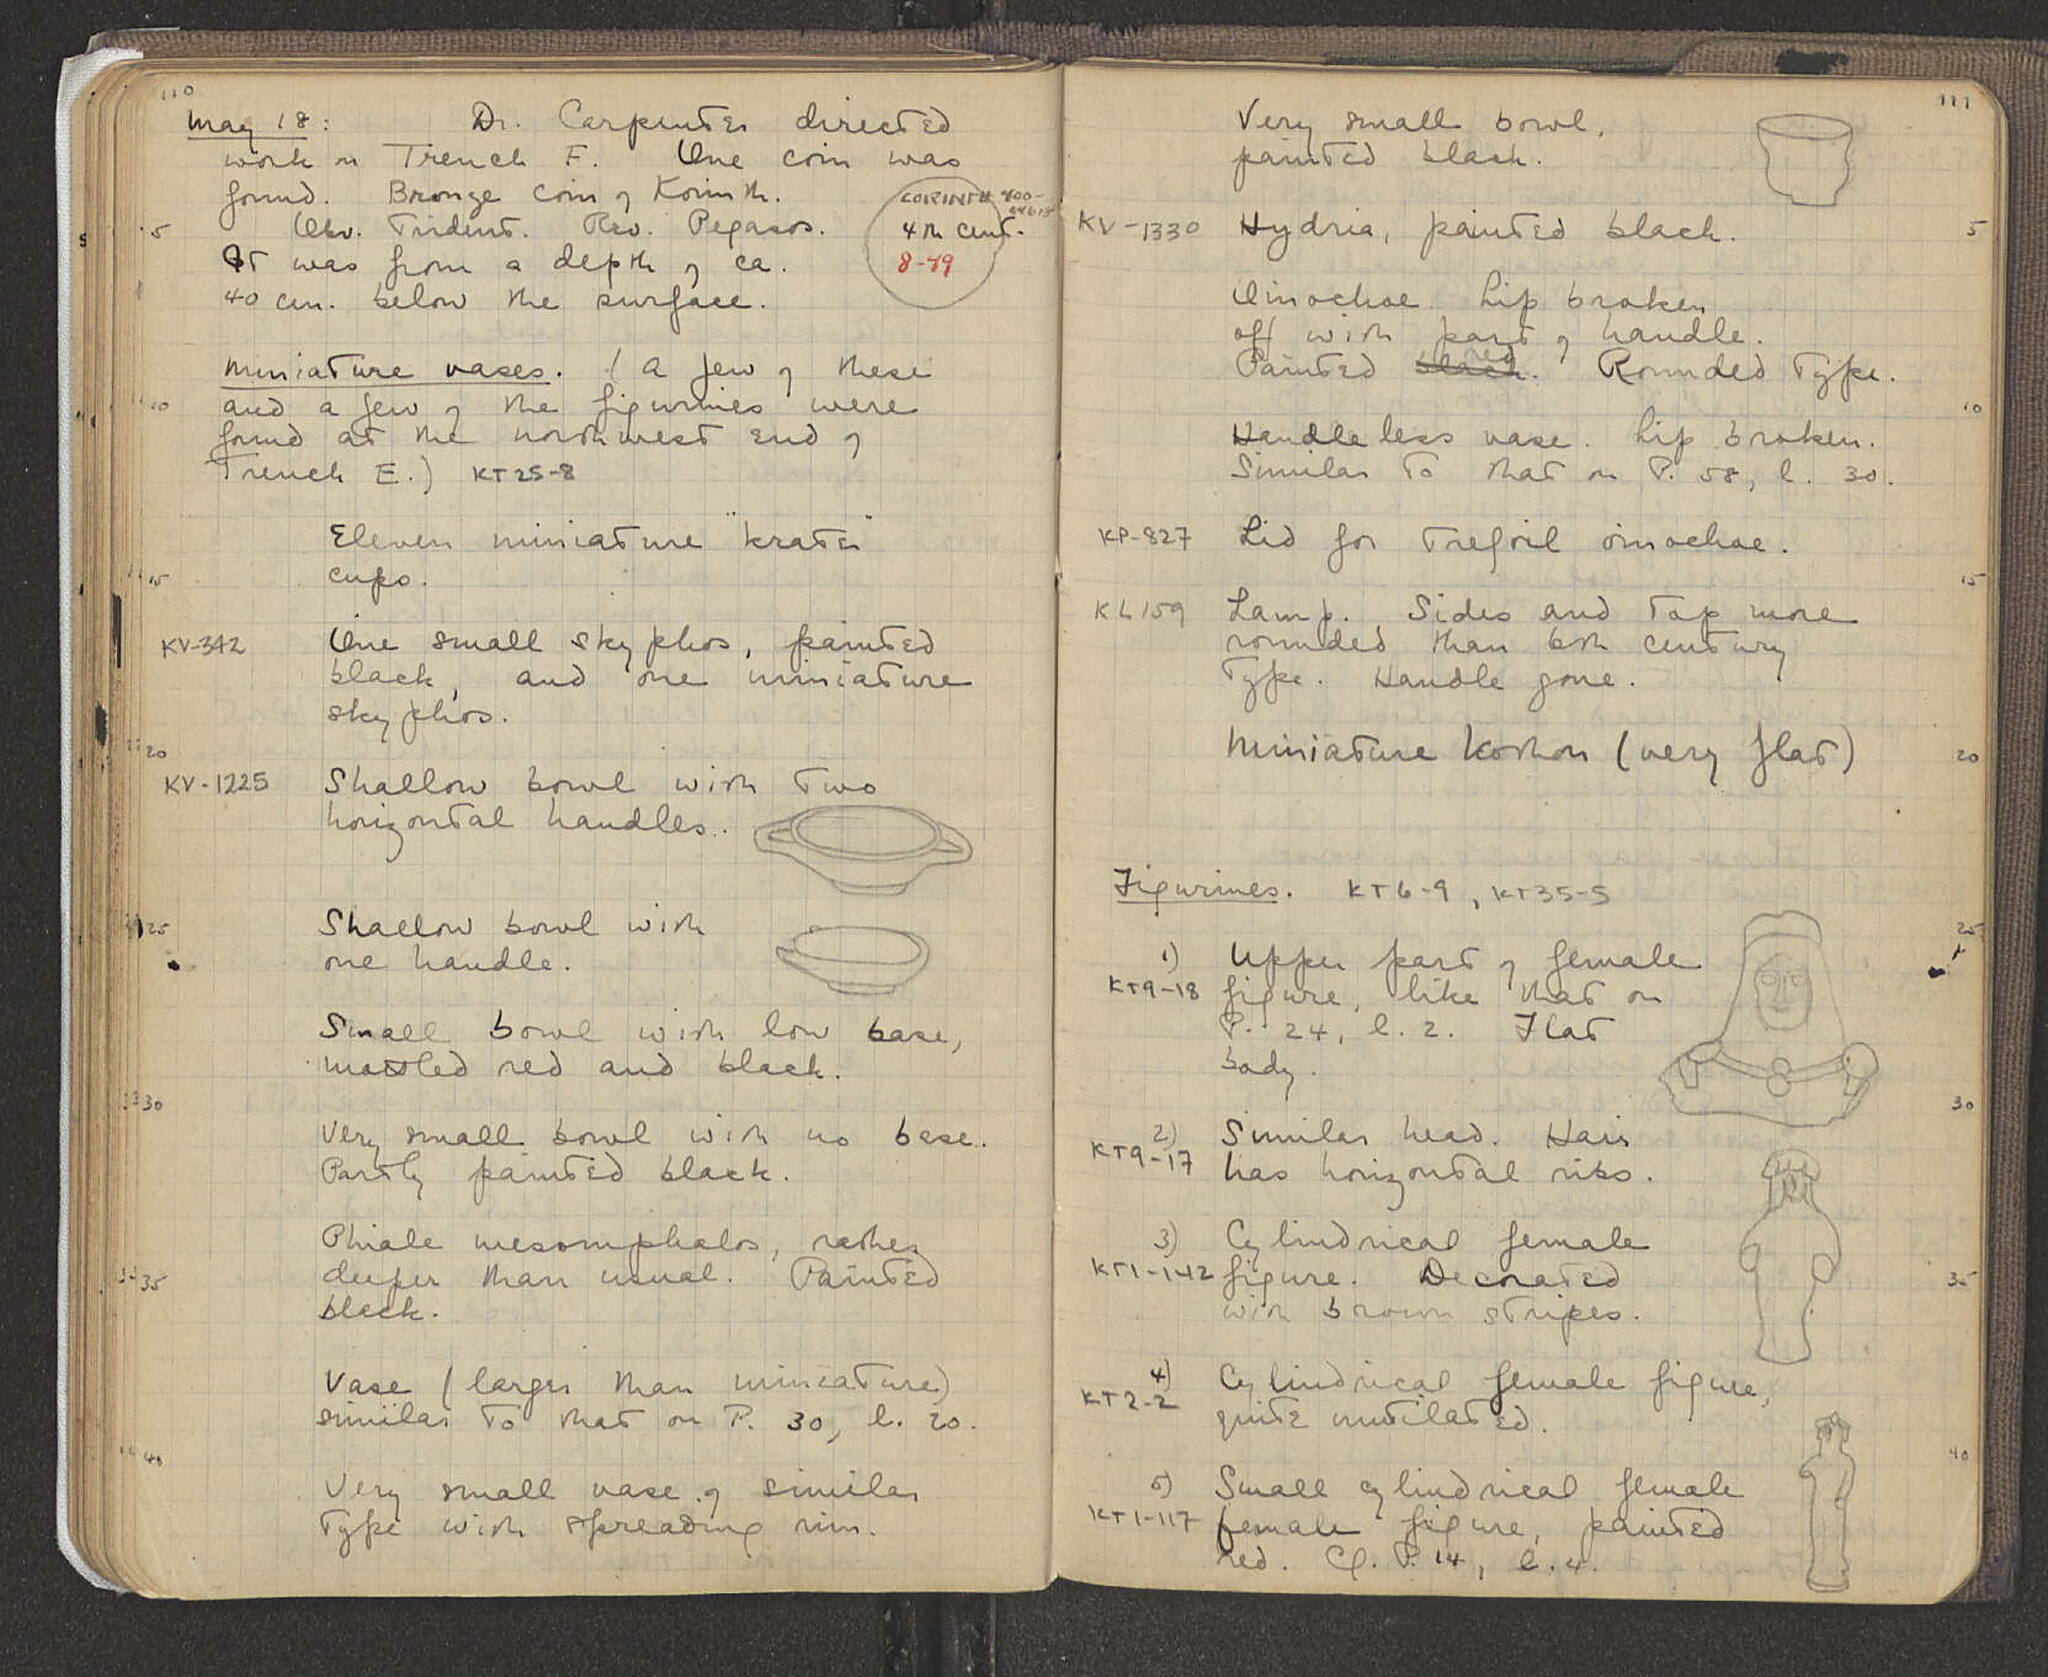 110
May 18: Dr. Carpenter directed
work in Trench F. One coin was
found. Bronze coin of Korinth.
Obv. Trident. Rev. Pegasos.
CORINTH 400-
4th cent.
8-79
It was from a depth of ca.
40 cm. below the surface.
Miniature vases. (A few of these
and a few of the figurines were
found at the northwest end of
Trench E.) KT25-8
Eleven miniature "krater"
cups.
KV-342 One small skyphos, painted
black, and one miniature
skyphos.
KV-1225 Shallow bowl with two
horizontal handles.
Shallow bowl with
one handle.
Small bowl with low base,
mottled red and black.
Very small bowl with no base.
Partly painted black.
Phiale mesomphalos, rather
deeper than usual. Painted
black.
Vase (larger than miniature)
similar to that on P. 30, l. 20.
Very small vase of similar
type with spreading rim.
5
10
15
20
25
30
35
40
111
Very small bowl,
painted black.
KV-1330 Hydria, painted black.
Oinochoe. Lip broken
off with part of handle.
Painted black red. Rounded type.
Handleless vase. Lip broken.
Similar to that on P. 58, l. 30.
KP-827 Lid for trefoil oinochoe.
KL159 Lamp. Sides and top more
rounded than 6th century
type. Handle gone.
Miniature kothon (very flat)
Figurines. KT6-9, KT35-5
1) Upper part of female
KT9-18 figure, like that on
P. 24, l. 2. Flat
body.
2) Similar head. Hair
KT9-17 has horizontal ribs.
3) Cylindrical female
KT1-142 figure. Decorated
with brown stripes.
4) Cylindrical female figure,
KT2-2 quite mutilated.
5) Small cylindrical female
KT1-117 female figure, painted
red. Cf. P. 14, l. 4.
5
10
15
20
25
30
35
40